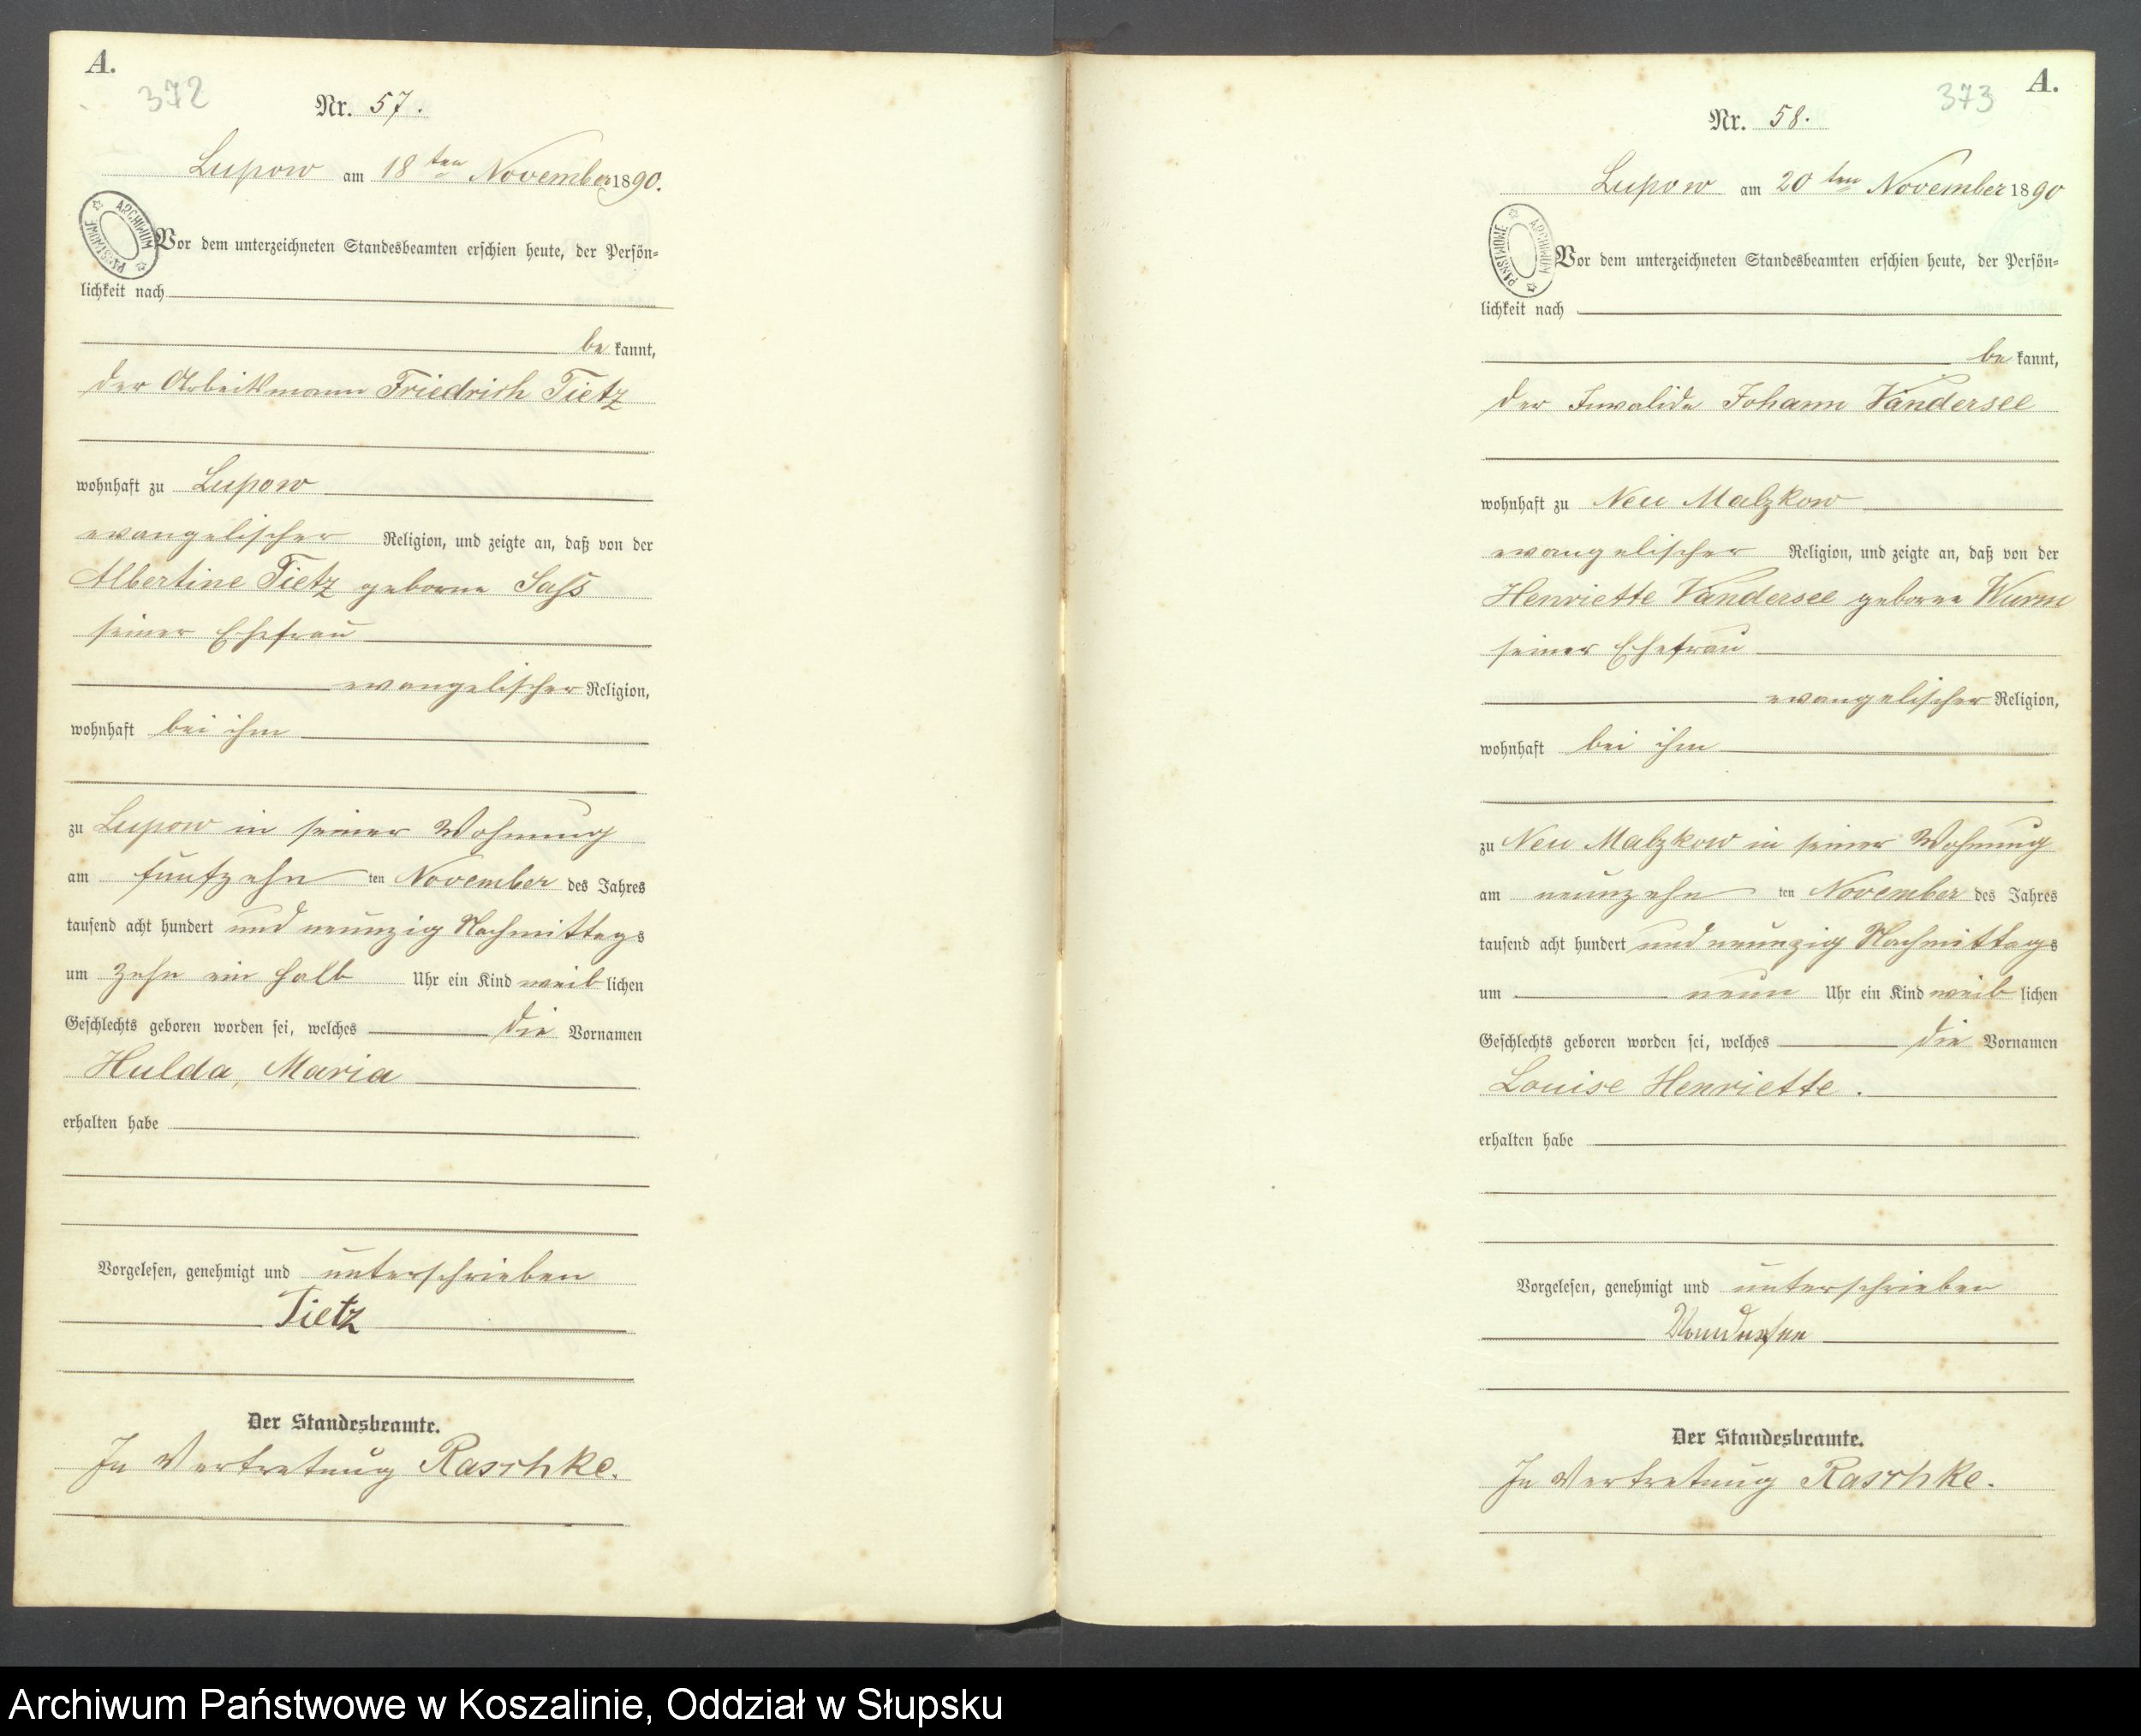 A.
372
Nr. 57.
Lupow am 18ten November 1890.
ARCHIWUM PAŃSTWOWE
Vor dem unterzeichneten Standesbeamten erschien heute, der Persön-
lichkeit nach
be kannt,
der Arbeitsmann Friedrich Tietz
wohnhaft zu Lupow
evangelischer Religion, und zeigte an, daß von der
Albertine Tietz geborne Sass
seiner Ehefrau
evangelischer Religion,
wohnhaft bei ihm
zu Lupow in seiner Wohnung
am fünfzehn ten November des Jahres
tausend acht hundert und neunzig Nachmittags
um zehn ein halb Uhr ein Kind weib lichen
Geschlechts geboren worden sei, welches die Vornamen
Hulda, Maria
erhalten habe
Vorgelesen, genehmigt und unterschrieben
Tietz
Der Standesbeamte.
In Vertretung Raschke.
A.
373
Nr. 58.
Lupow am 20ten November 1890
ARCHIWUM PAŃSTWOWE
Vor dem unterzeichneten Standesbeamten erschien heute, der Persön-
lichkeit nach
be kannt,
der Invalide Johann Vandersee
wohnhaft zu Neu Malzkow
evangelischer Religion, und zeigte an, daß von der
Henriette Vandersee geborne Wurm
seiner Ehefrau
evangelischer Religion,
wohnhaft bei ihm
zu Neu Malzkow in seiner Wohnung
am neunzehn ten November des Jahres
tausend acht hundert und neunzig Nachmittags
um neun Uhr ein Kind weib lichen
Geschlechts geboren worden sei, welches die Vornamen
Louise Henriette.
erhalten habe
Vorgelesen, genehmigt und unterschrieben
Vandersee
Der Standesbeamte.
In Vertretung Raschke.
Archiwum Państwowe w Koszalinie, Oddział w Słupsku